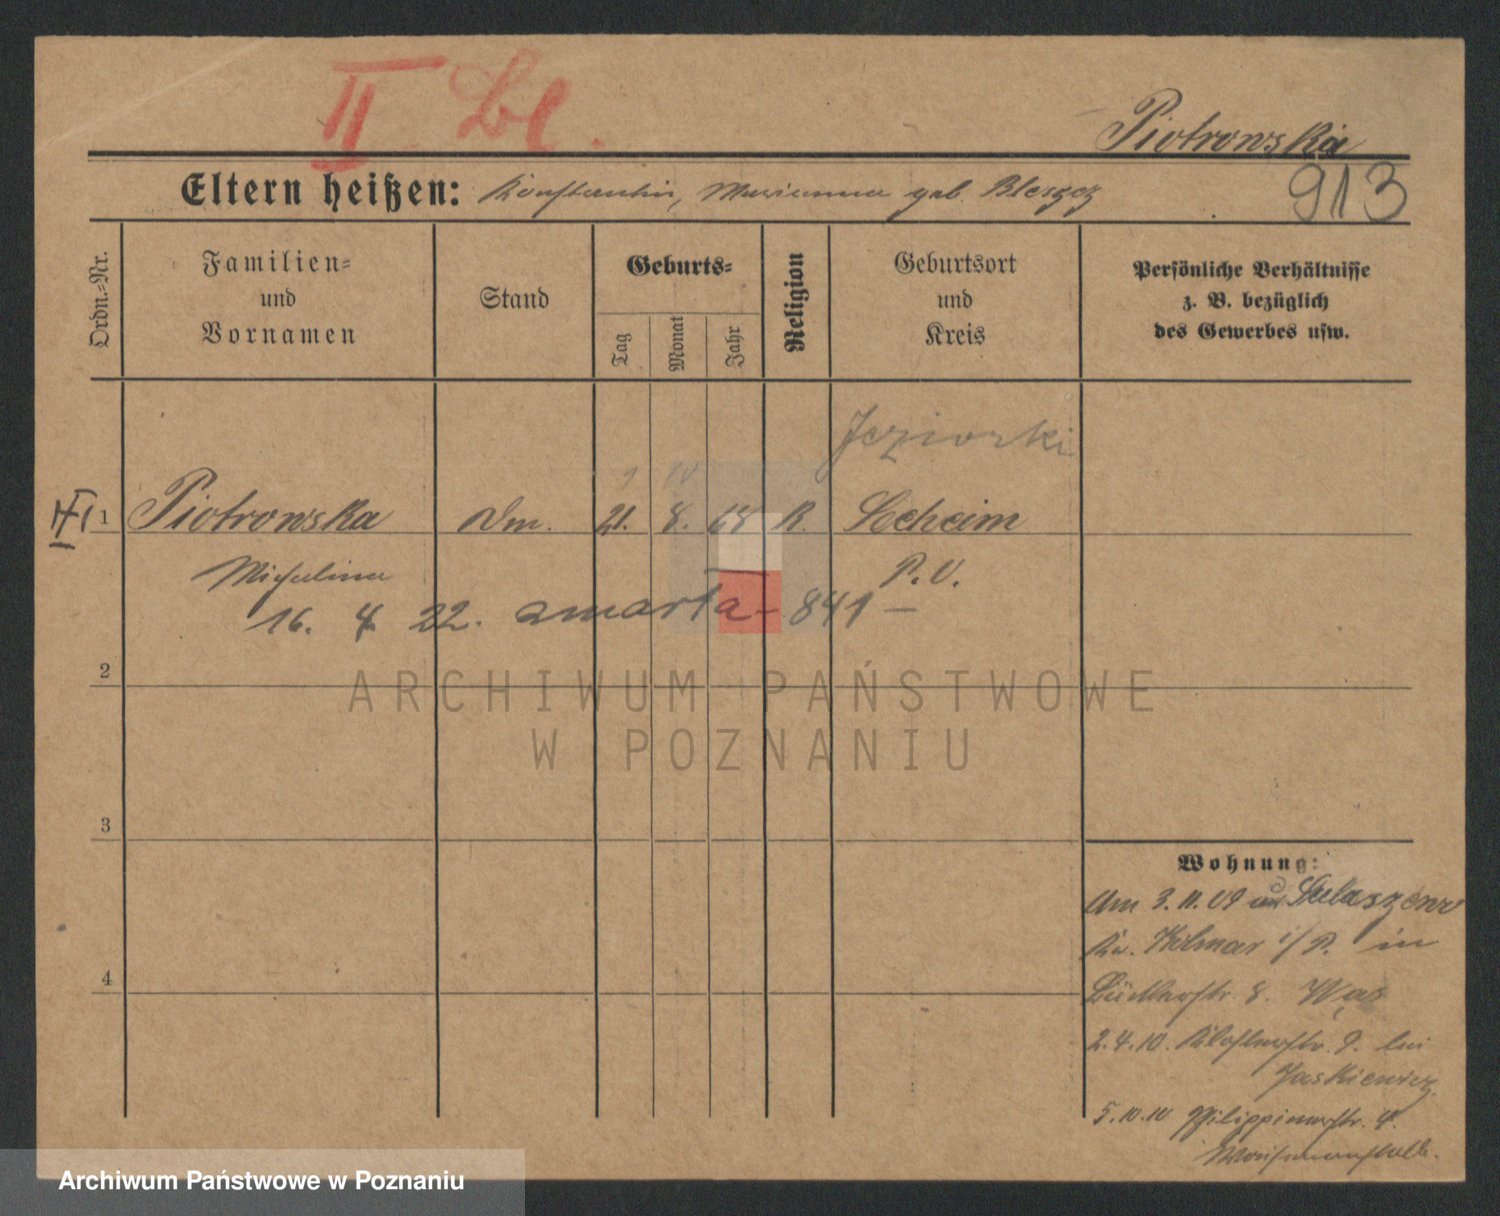 II. Bl.
Piotrowska
Eltern heißen: Konstantin, Marianna geb. Bleszcz
913
Ordn.-Nr.
Familien-
und
Vornamen
Stand
Geburts-
Tag
Monat
Jahr
Religion
Geburtsort
und
Kreis
Persönliche Verhältnisse
z. B. bezüglich
des Gewerbes usw.
Jeziorki
1 Piotrowska 21. 8. 68 K. Seeheim
Michalina P. O.
16. 4 22. zmarła - 841 -
2
ARCHIWUM PAŃSTWOWE
W POZNANIU
3
4
Wohnung:
Am 3. 11. 09
Kr. Kolmar i/P. in
8.
2. 4. 10. Klosterstr. 9. bei
Jaskiewicz.
5. 10. 10 Philippinerstr. 4.
Archiwum Państwowe w Poznaniu